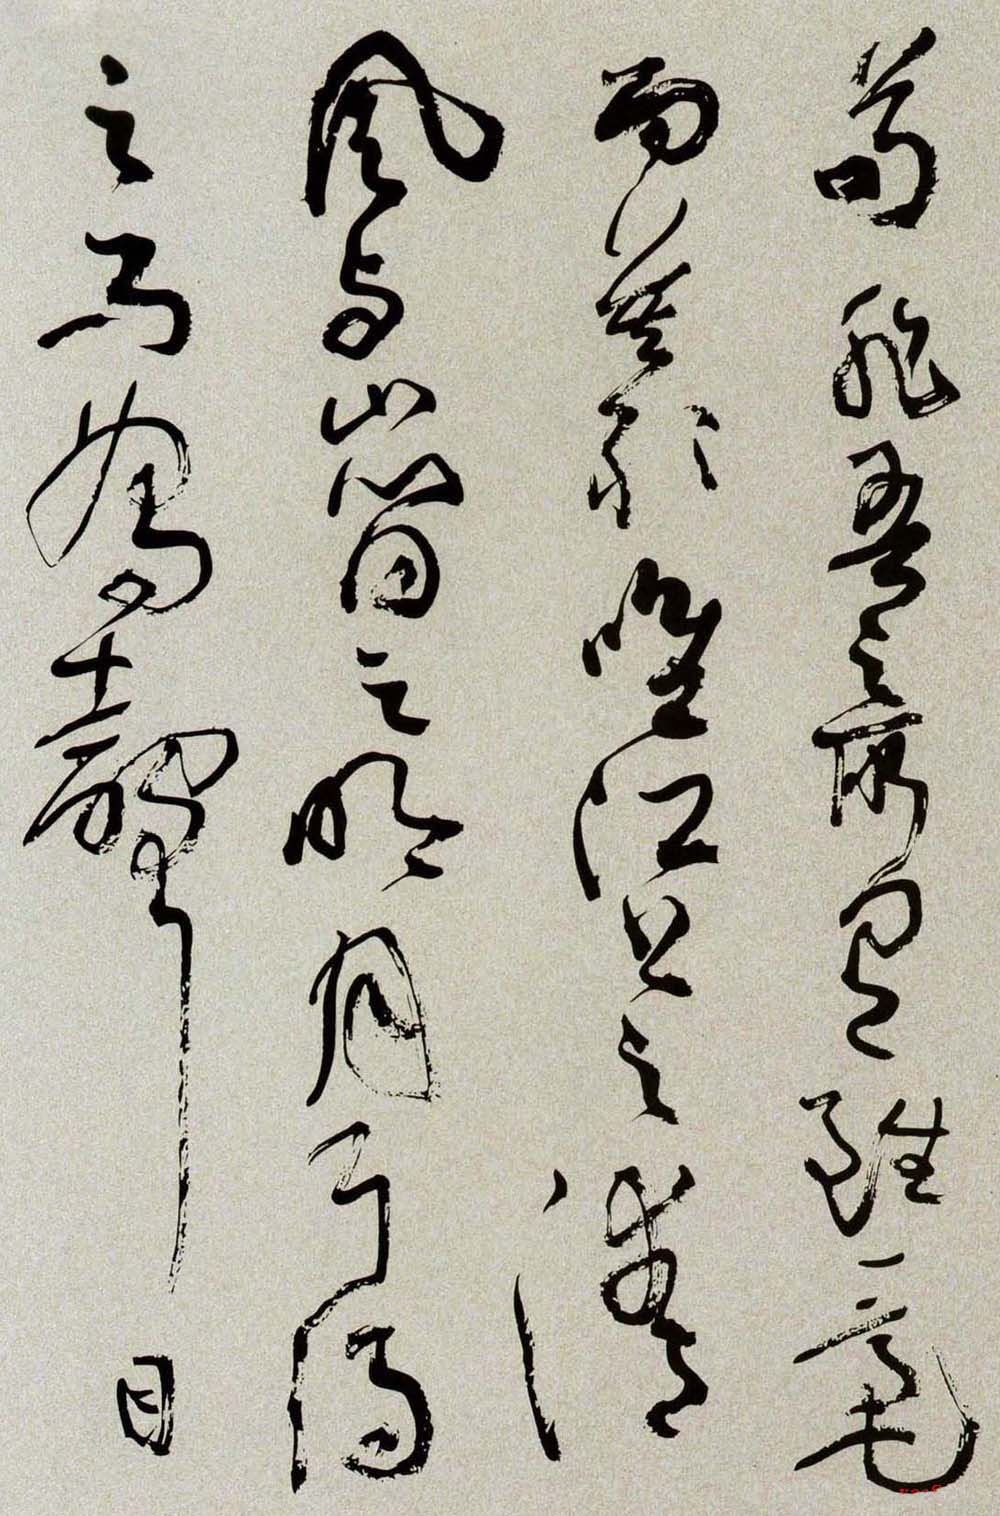 苟非吾之所有雖一毫
而莫取惟江上之清
風与山間之明月耳得
之而為聲目